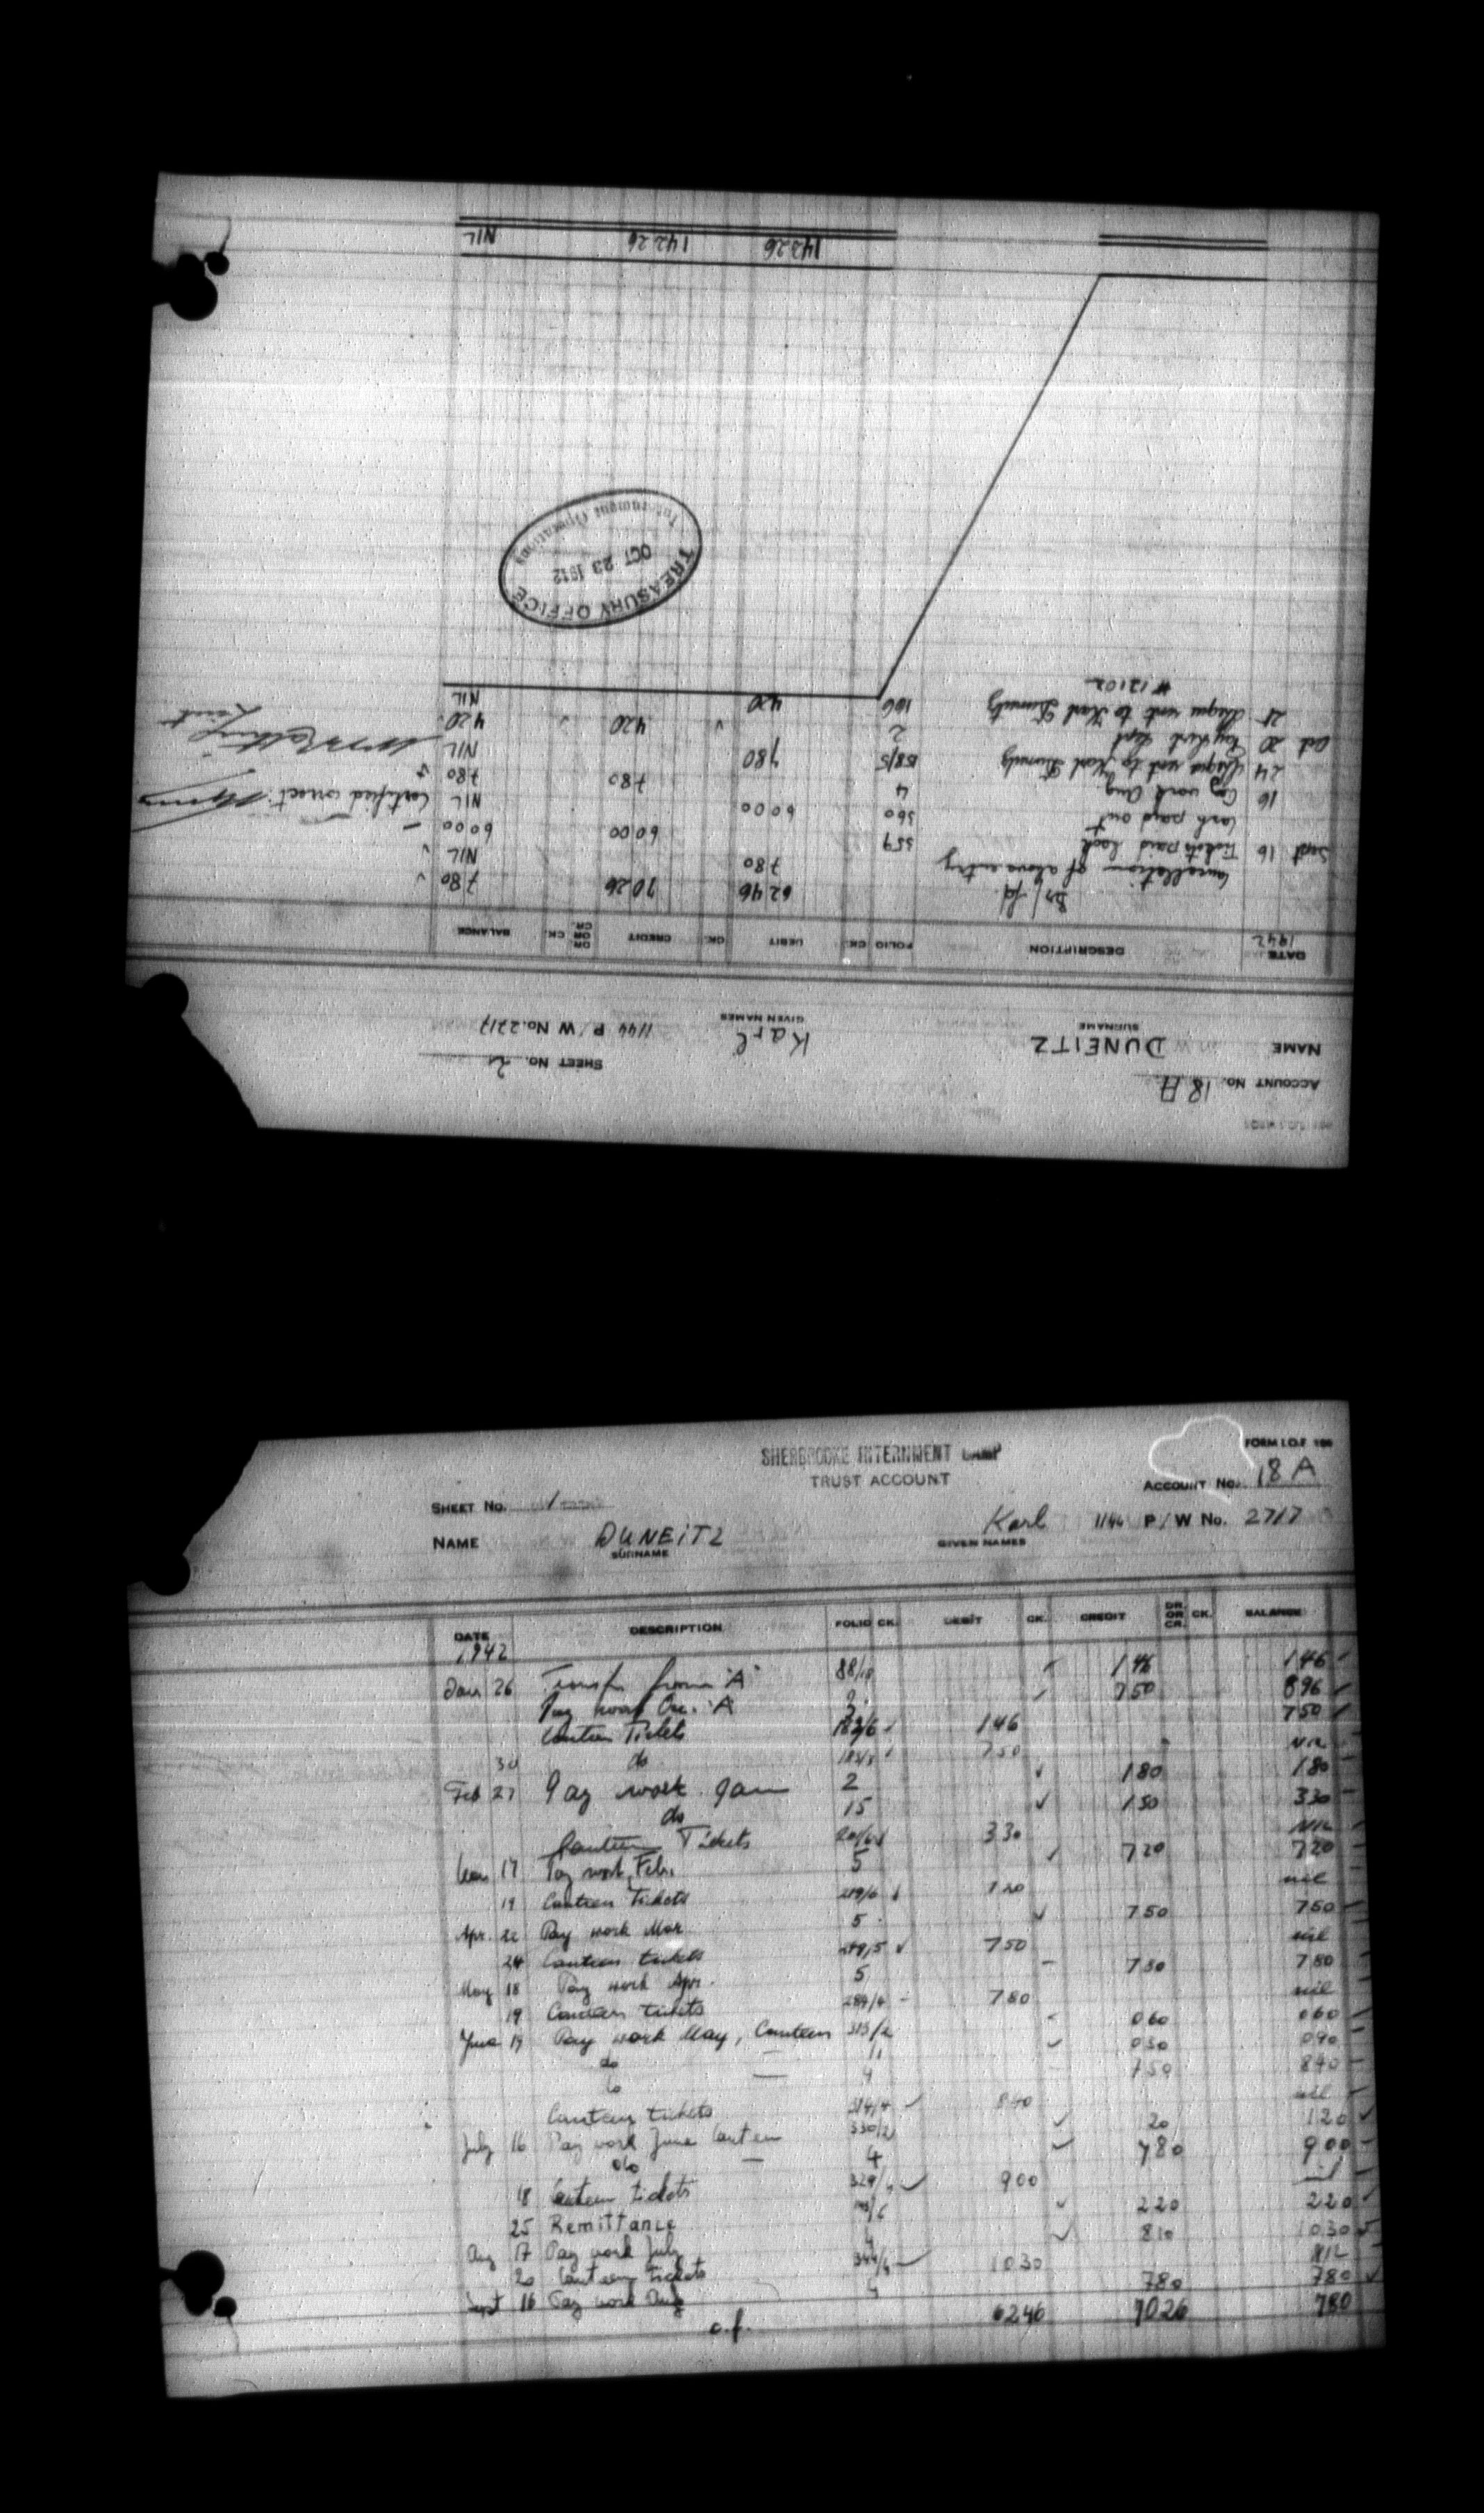 ACCOUNT No. 18 A
SHEET No. 2
NAME DUNEITZ Karl 1144 P/W No. 2717
SURNAME GIVEN NAMES
DATE DESCRIPTION FOLIO CK. DEBIT CK. CREDIT DR. OR CR. CK. BALANCE
1942
Br/fd. 6246 7026 780 ✓
Cancellation of above entry 780 NIL ✓
Sept 16 Tickets paid back 359 6000 6000 –
Cash paid out 360 6000 NIL Certified correct
16 Pay work Aug. 4 780 780 ✓
24 Cheque sent to Karl 158/5 780 NIL
Oct 20 Pay work Sept 2 420 420
21 Cheque sent to Karl 166 420 NIL
# 12102
TREASURY OFFICE
OCT 23 1942
Internment Operations
14226 14226 NIL
FORM I.O.F. 100
SHERBROOKE INTERNMENT CAMP
TRUST ACCOUNT
ACCOUNT No. 18 A
SHEET No. 1
NAME DUNEITZ Karl 1144 P/W No. 2717
SURNAME GIVEN NAMES
DATE DESCRIPTION FOLIO CK. DEBIT CK. CREDIT DR. OR CR. CK. BALANCE
1942
Jan 26 Transfer from "A" 88/10 ✓ 146 146
Pay work "A" ✓ 750 896
Canteen Tickets 146 750
30 do 750 NIL
Feb 27 Pay work Jan 2 ✓ 180 180
do 15 ✓ 150 330
Canteen Tickets 330 NIL
17 Pay work Feb. 5 ✓ 720 720
19 Canteen Tickets 219/6 720 nil
Apr. 22 Pay work Mar 5 ✓ 750 750
24 Canteen tickets ✓ 750 nil
May 18 Pay work Apr. 5 – 780 780
19 Canteen tickets 284/4 – 780 nil
June 19 Pay work May, Canteen 313/2 060 060
do — 11 ✓ 030 090
do — 4 750 840
Canteen tickets 314/4 ✓ 840 nil
July 16 Pay work June Canteen 330/2 ✓ 120
do — 4 ✓ 780 900
18 Canteen tickets ✓ 900 nil
25 Remittance ✓ 220 220
Aug 17 Pay work July 4 ✓ 810 1030
20 Canteen tickets ✓ 1030 NIL
Sept 16 Pay work Aug 4 780 780
c.f. 6246 7026 780